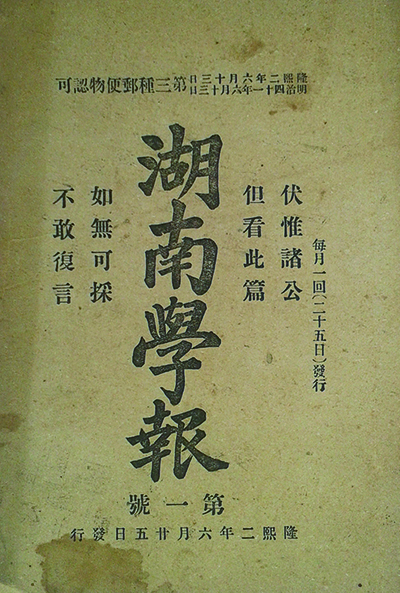 隆熙二年六月十三日
明治四十一年六月十三日
第三種郵便物認可
每月一回(二十五日)發行
伏惟諸公
但看此篇
湖南學報
如無可採
不敢復言
第一號
隆熙二年六月廿五日發行